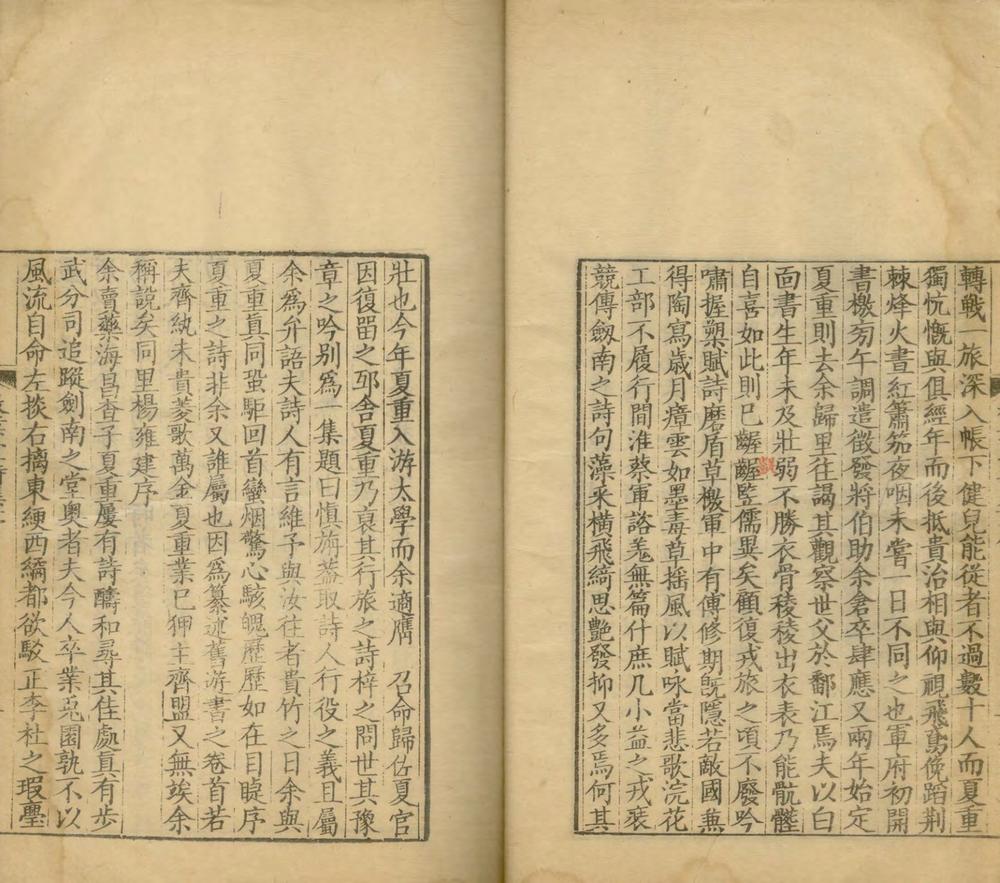 轉戰一旅深入帳下健兒能從者不過數十人而夏重
獨忼慨與俱經年而後抵貴治相與仰視飛鳶俛蹈荆
棘烽火晝紅簫笳夜咽未嘗一日不同之也軍府初開
書檄旁午調遣徵發將伯助余倉卒肆應又兩年始定
夏重則去余歸里往謁其觀察世父於鄱江焉夫以白
面書生年未及壯弱不勝衣骨稜稜出衣表乃能骯髒
自喜如此則已與齷齪竪儒異矣顧復戎旅之頃不廢吟
嘯握槊賦詩磨盾草檄軍中有傅修期旣隱若敵國兼
得陶寫歲月瘴雲如墨毒草摇風以賦咏當悲歌浣花
工部不履行間淮蔡軍諮羗無篇什庶几小益之戎裝
競傳劔南之詩句藻采橫飛綺思艷發抑又多焉何其
壯也今年夏重入游太學而余適膺 召命歸佐夏官
因復畱之邸舍夏重乃裒其行旅之詩梓之問世其豫
章之吟别爲一集題曰慎旃蓋取詩人行役之義且屬
余爲弁語夫詩人有言維予與汝往者貴竹之日余與
夏重眞同蛩駏回首蠻烟驚心駭魄歷歷如在目睫序
夏重之詩非余又誰屬也因爲纂述舊游書之卷首若
夫齊紈未貴菱歌萬金夏重業已狎主齊盟又無竢余
稱說矣同里楊雍建序
余賣藥海昌香子夏重屢有詩醻和尋其佳處眞有步
武分司追蹤劍南之堂奥者夫今人卒業兎園孰不以
風流自命左掞右摛東綆西繘都欲駁正李杜之瑕璺